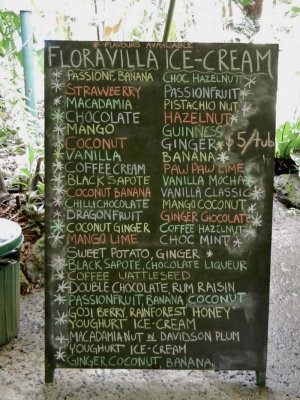 * FLAVOURS AVAILABLE
FLORAVILLA ICE-CREAM
* PASSIONF, BANANA CHOC HAZELNUT *
STRAWBERRY PASSIONFRUIT *
* MACADAMIA PISTACHIO NUT
* CHOCOLATE HAZELNUT *
* MANGO GUINNESS *
* COCONUT GINGER * $5/tub
* VANILLA BANANA *
* COFFEE CREAM PAW PAW LIME
* BLACK SAPOTE VANILLA MOCHA *
* COCONUT BANANA VANILLA CLASSIC *
* CHILLI CHOCOLATE MANGO COCONUT
* DRAGONFRUIT GINGER CHOCOLATE *
* COCONUT GINGER COFFEE HAZELNUT *
* MANGO LIME CHOC MINT *
SWEET POTATO, GINGER *
* BLACK SAPOTE, CHOCOLATE LIQUEUR
* COFFEE WATTLESEED
* DOUBLE CHOCOLATE, RUM RAISIN
* PASSIONFRUIT, BANANA COCONUT
* GOJI BERRY, RAINFOREST HONEY
YOUGHURT ICE-CREAM
* MACADAMIA NUT W DAVIDSON PLUM
YOUGHURT ICE-CREAM
* GINGER COCONUT BANANA